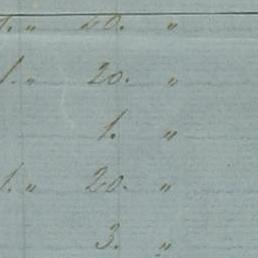 1. " 20. "
1. " 20. "
1. "
1. " 20. "
3. "